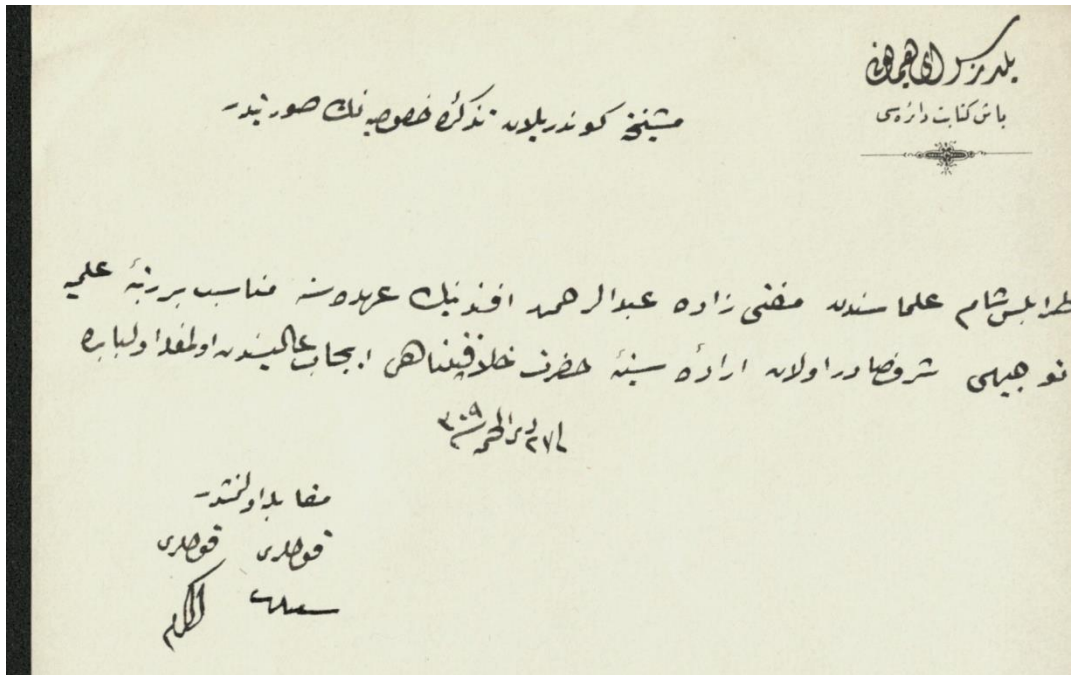 يلدز سراى همايونى
باش كتابت دائره سى
مشيخته كوندريلان تذكرۀ خصوصيه نك صورتيدر
طرابلس شام علماسندن مفتى زاده عبدالرحمن افندينك عهده سنه مناسب بر رتبۀ علميه
توجيهى شرفصادر اولان ارادۀ سنيۀ حضرت خلافتپناهى ايجاب عاليسندن اولمغله اولبابده
فى ٢٧ ذى الحجه سنه ٣٠٩
مقابله اولنمشدر
قولارى قولارى